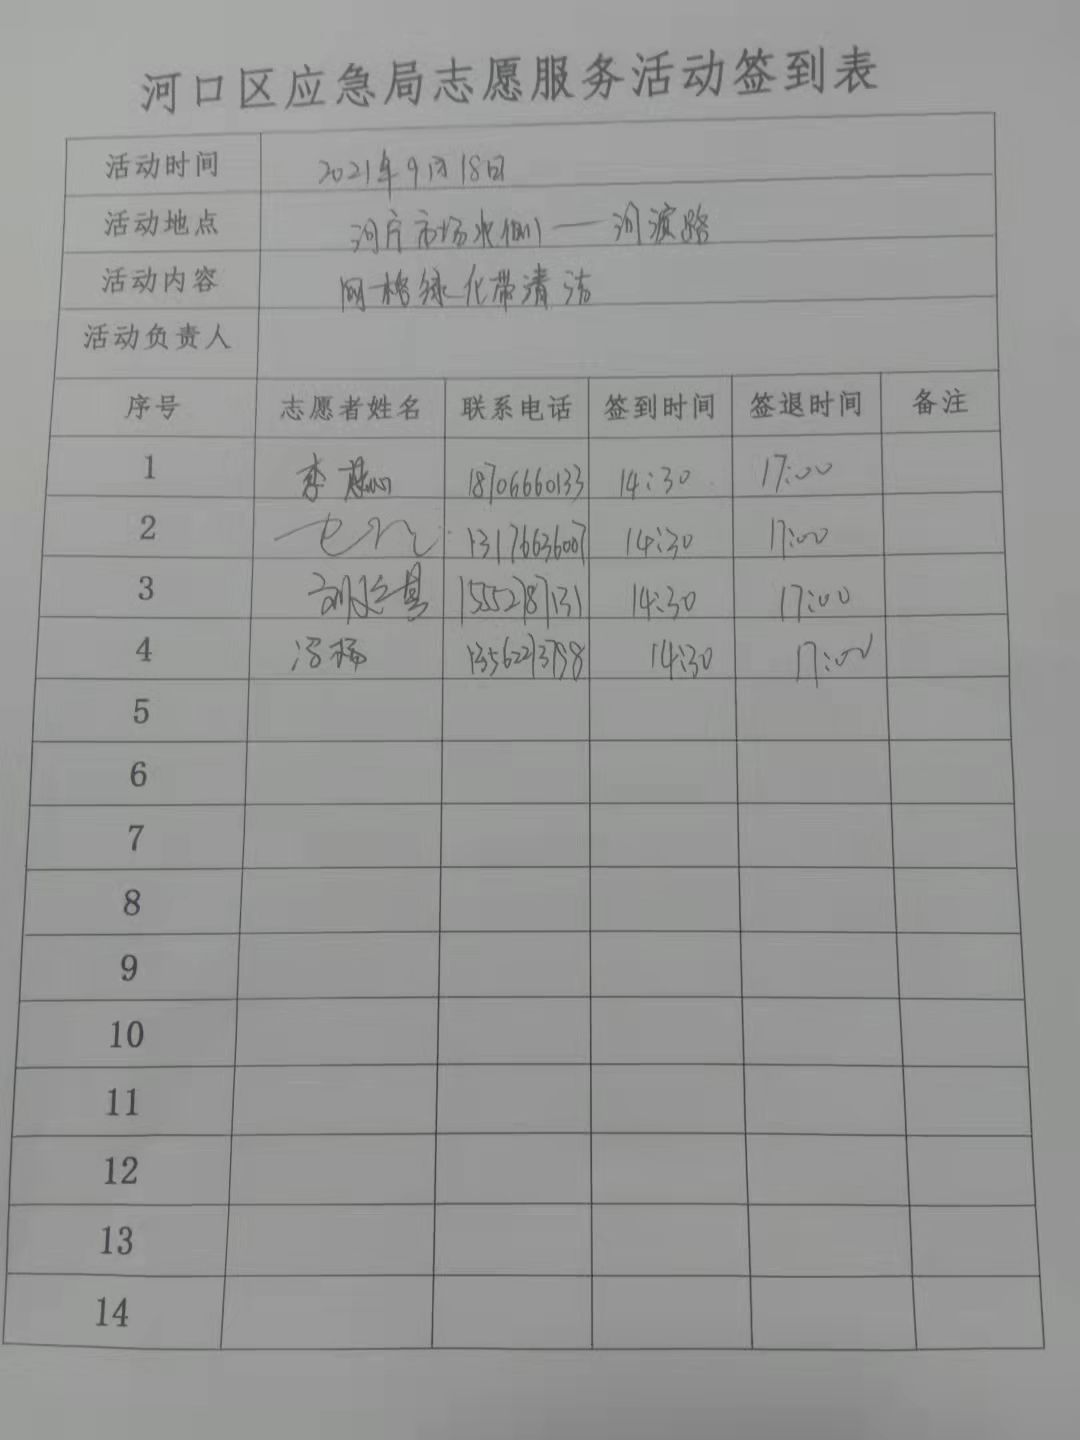 河口区应急局志愿服务活动签到表
活动时间 2021年9月18日
活动地点 河庆市场北侧——河滨路
活动内容 网格绿化带清洁
活动负责人
序号 志愿者姓名 联系电话 签到时间 签退时间 备注
1 李 18706660133 14:30 17:00
2 13176636007 14:30 17:00
3 15552787131 14:30 17:00
4 冯杨 13562273798 14:30 17:00
5
6
7
8
9
10
11
12
13
14